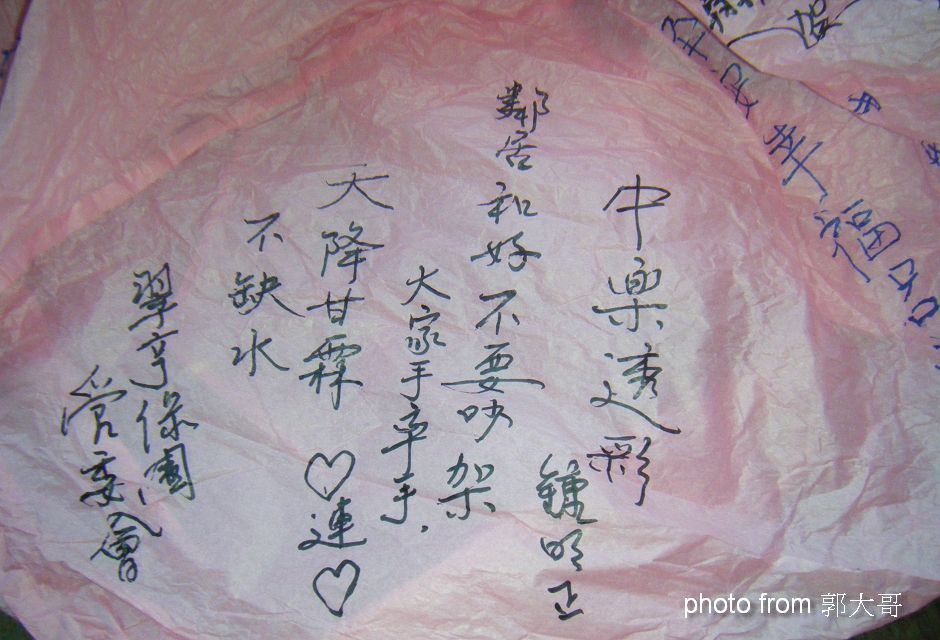 幸福
中樂透彩
鍾明正
鄰居和好不要吵架
大家手牽手,
天降甘霖♡連♡
不缺水
翠亨綠園
管委會
photo from 郭大哥